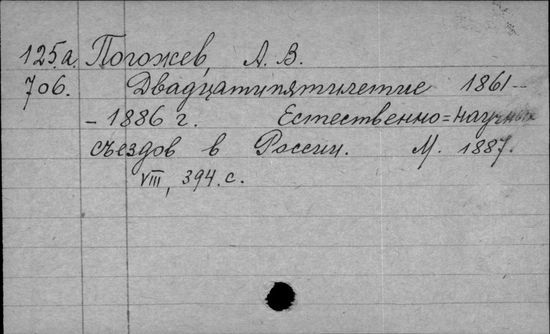 125.а. Погожев, А. В.
706. Двадцатипятилетие 1861–
– 1886 г. Естественно=научных
съездов в России. М. 1887.
VIII, 394. с.